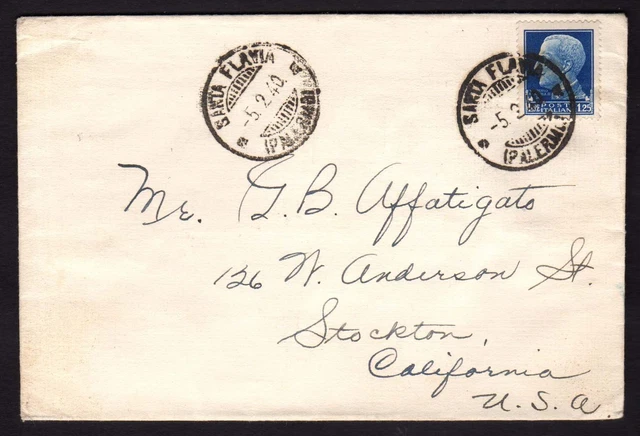 SANTA FLAVIA
-5.2.40
(PALERMO)
SANTA FLAVIA
-5.2.40
(PALERMO)
POSTE
ITALIANE
1,25
Mr. G. B. Affatigato
126 W. Anderson St.
Stockton,
California
U. S. A